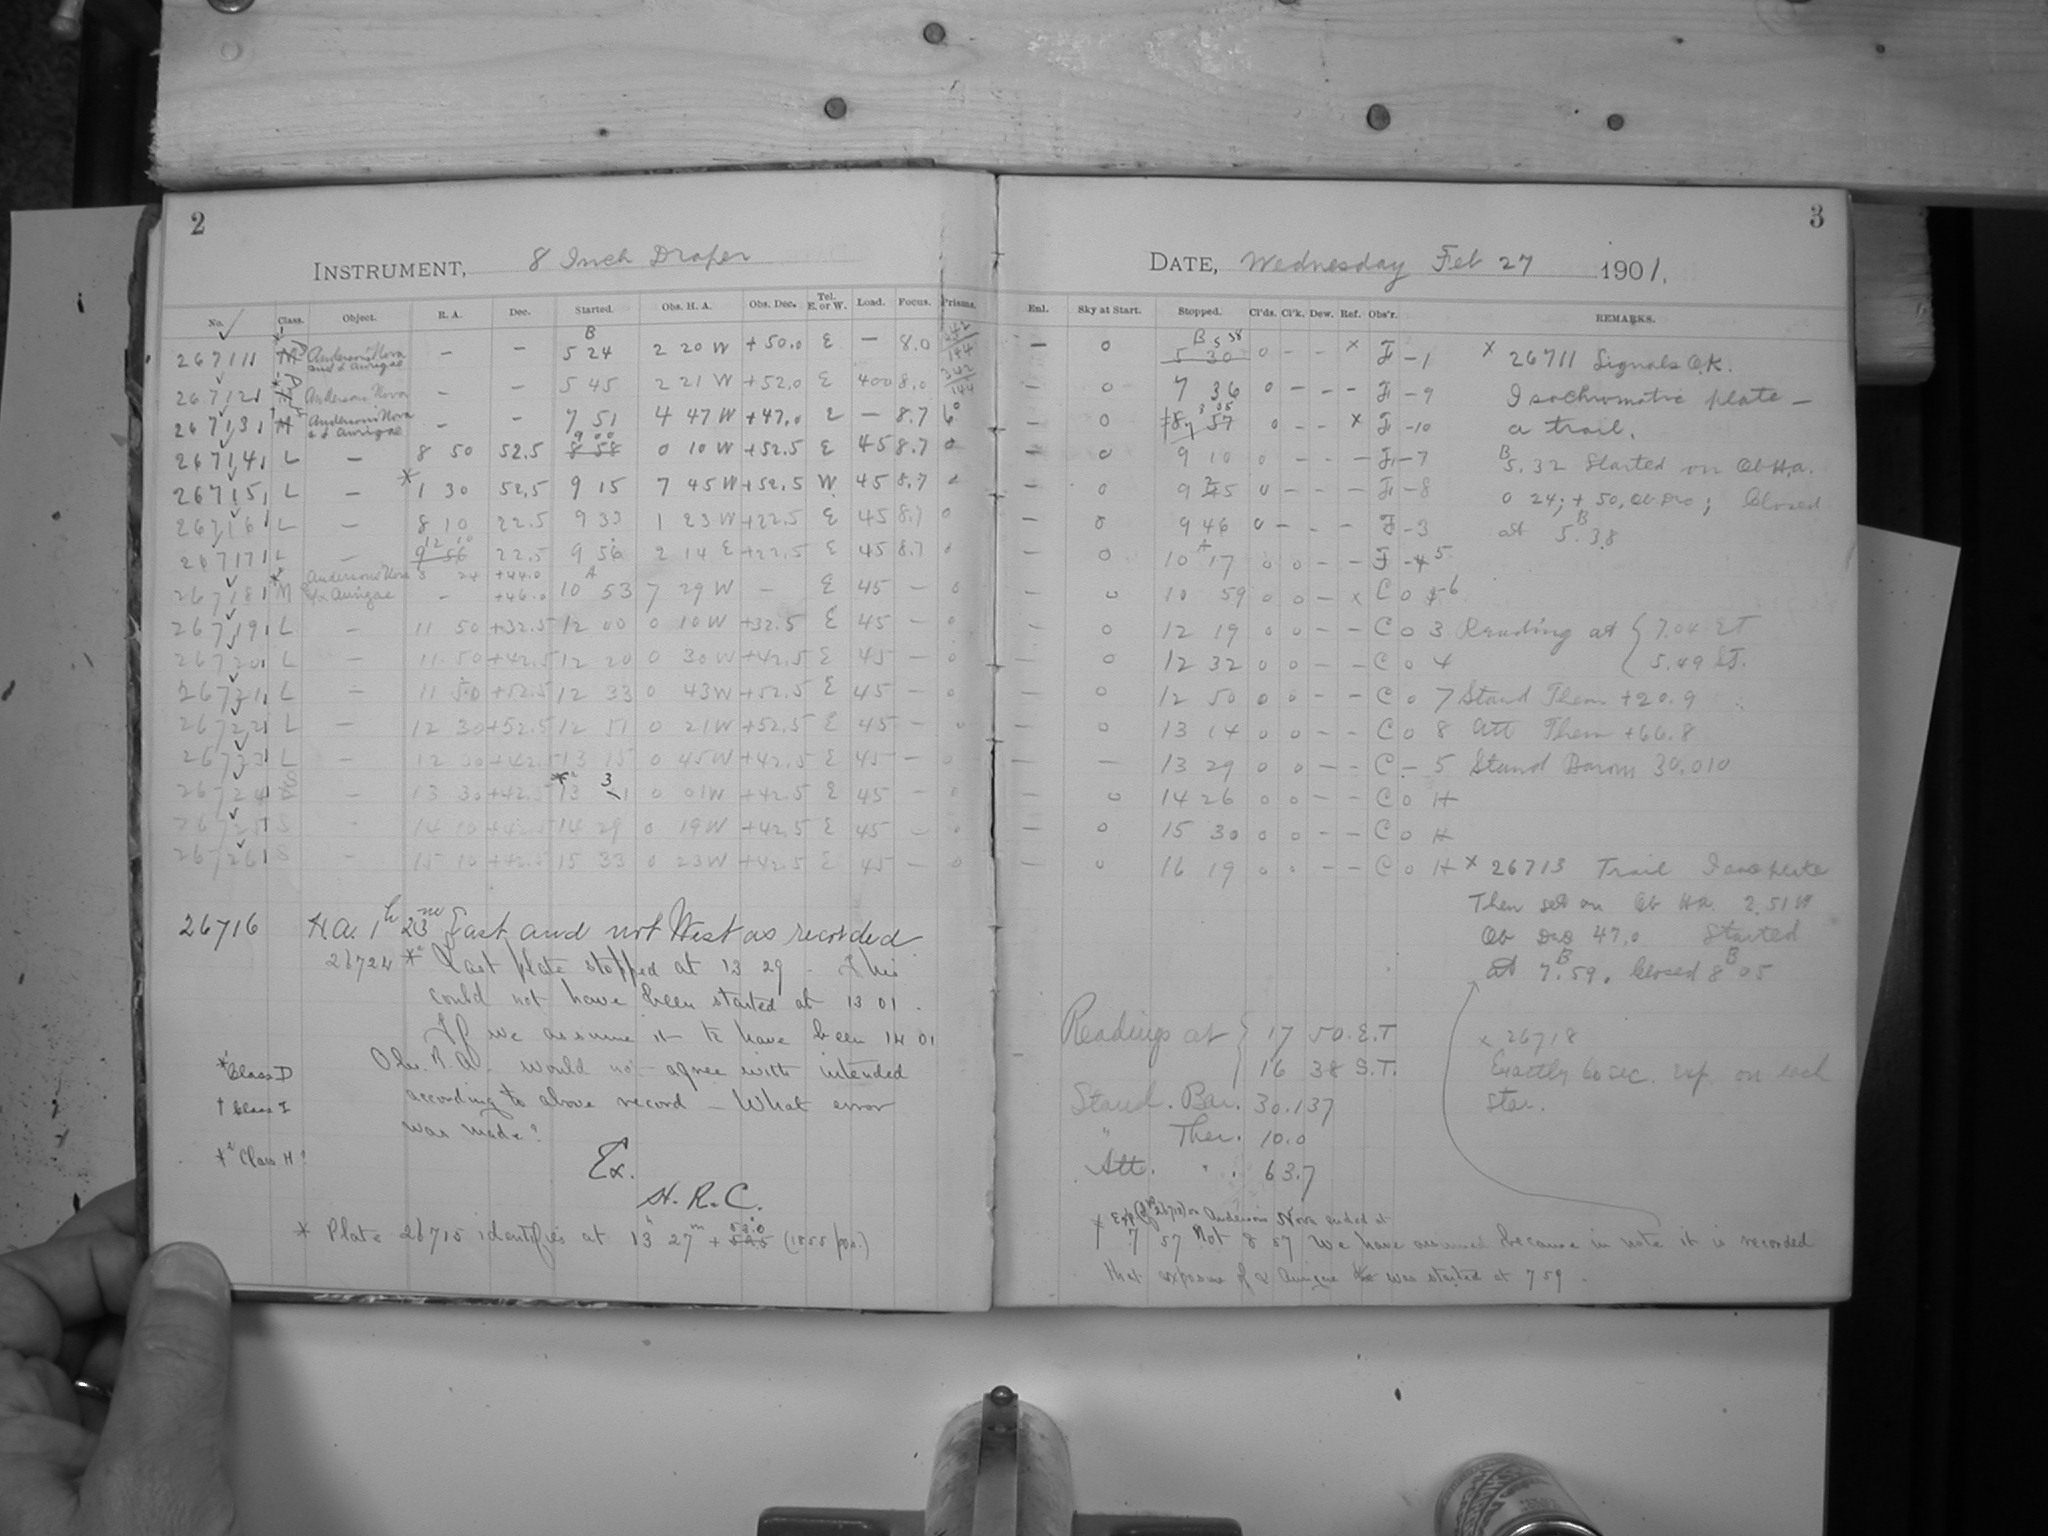 2
INSTRUMENT, 8 Inch Draper
No. Class. Object. R. A. Dec. Started. Obs. H. A. Obs. Dec. Tel. E. or W. Load. Focus. Prisms.
26711 Anderson's Nova and α Aurigae — — B 5 24 2 20 W +50.0 E — 8.0
26712 Andersons Nova — — 5 45 2 21 W +52.0 E 400 8.0
26713 Anderson's Nova & α Aurigae — — 7 51 4 47 W +47.0 — 8.7
26714 L — 8 50 52.5 9 00 8 58 0 10 W +52.5 E 45 8.7 0
26715 L — * 1 30 52.5 9 15 7 45 W +52.5 W 45 8.7 0
26716 L — 8 10 22.5 9 33 1 23 W +22.5 E 45 8.7 0
26717 L — 12 10 9 56 22.5 9 56 2 14 E +22.5 E 45 8.7 0
26718 M Andersons Nova & α Aurigae 3 24 +44.0 — +46.0 A 10 53 7 29 W — E 45 — 0
26719 L — 11 50 +32.5 12 00 0 10 W +32.5 E 45 — 0
26720 L — 11 50 +42.5 12 20 0 30 W +42.5 E 45 — 0
26721 L — 11 50 +52.5 12 33 0 43 W +52.5 E 45 — 0
26722 L — 12 30 +52.5 12 51 0 21 W +52.5 E 45 — 0
26723 L — 12 30 +42.5 13 15 0 45 W +42.5 E 45 — 0
26724 S — 13 30 +42.5 13 31 0 01 W +42.5 E 45 — 0
26725 S — 14 10 +42.5 14 29 0 19 W +42.5 E 45 — 0
26726 S — 15 10 +42.5 15 33 0 23 W +42.5 E 45 — 0
26716 H.A. 1h 23m East and not West as recorded
26724 * Last plate stopped at 13 29 - This
could not have been started at 13 01.
If we assume it to have been 14 01
Obs. R.A. would not agree with intended
according to above record – What error
was made?
* Class D
† Class I
*² Class H?
Ex.
H. R. C.
* Plate 26715 identifies at 13h 27m + 53.0 (1855 pos.)
3
DATE, Wednesday Feb 27 1901.
Enl. Sky at Start. Stopped. Cl'ds. Cl'k. Dew. Ref. Obs'r. REMARKS.
— 0 B 5 38 5 30 0 — — x F — 1 x 26711 Signals O.K.
— 0 7 36 0 — — — F — 9 Isochromatic plate —
— 0 8 05 8 57 0 — — x F — 10 a trail.
— 0 9 10 0 — — — F — 7 B 5.32 Started on Ob H.a.
— 0 9 25 0 — — — F — 8 0 24; + 50, Ob Dec; Closed
— 0 9 46 0 — — — F — 3 at 5.38 B
— 0 10 17 0 0 — — F — 5
— 0 10 59 0 0 — x C 0 6
— 0 12 19 0 0 — — C 0 3 Reading at { 7.04 ET
— 0 12 32 0 0 — — C 0 4 5.49 ST.
— 0 12 50 0 0 — — C 0 7 Stand Them +20.9
— 0 13 14 0 0 — — C 0 8 Att Them +66.8
— — 13 29 0 0 — — C — 5 Stand Barom 30.010
— 0 14 26 0 0 — — C 0 H
— 0 15 30 0 0 — — C 0 H
— 0 16 19 0 0 — — C 0 H x 26713 Trail
Then set on Ob Ha. 2.51 W
Ob Dec 47.0 Started
at 7 B 59. Closed 8 B 05
Readings at { 17 50. E.T
16 38 S.T.
Stand. Bar. 30.137
" Ther. 10.0
Att. " . 63.7
x 26718
Exactly 60 sec. exp. on each
star.
x Exp (of 26713) on Andersons Nova ended at
7 57 Not 8 57 We have assumed because in note it is recorded
that exposure of α Aurigae was started at 7 59.